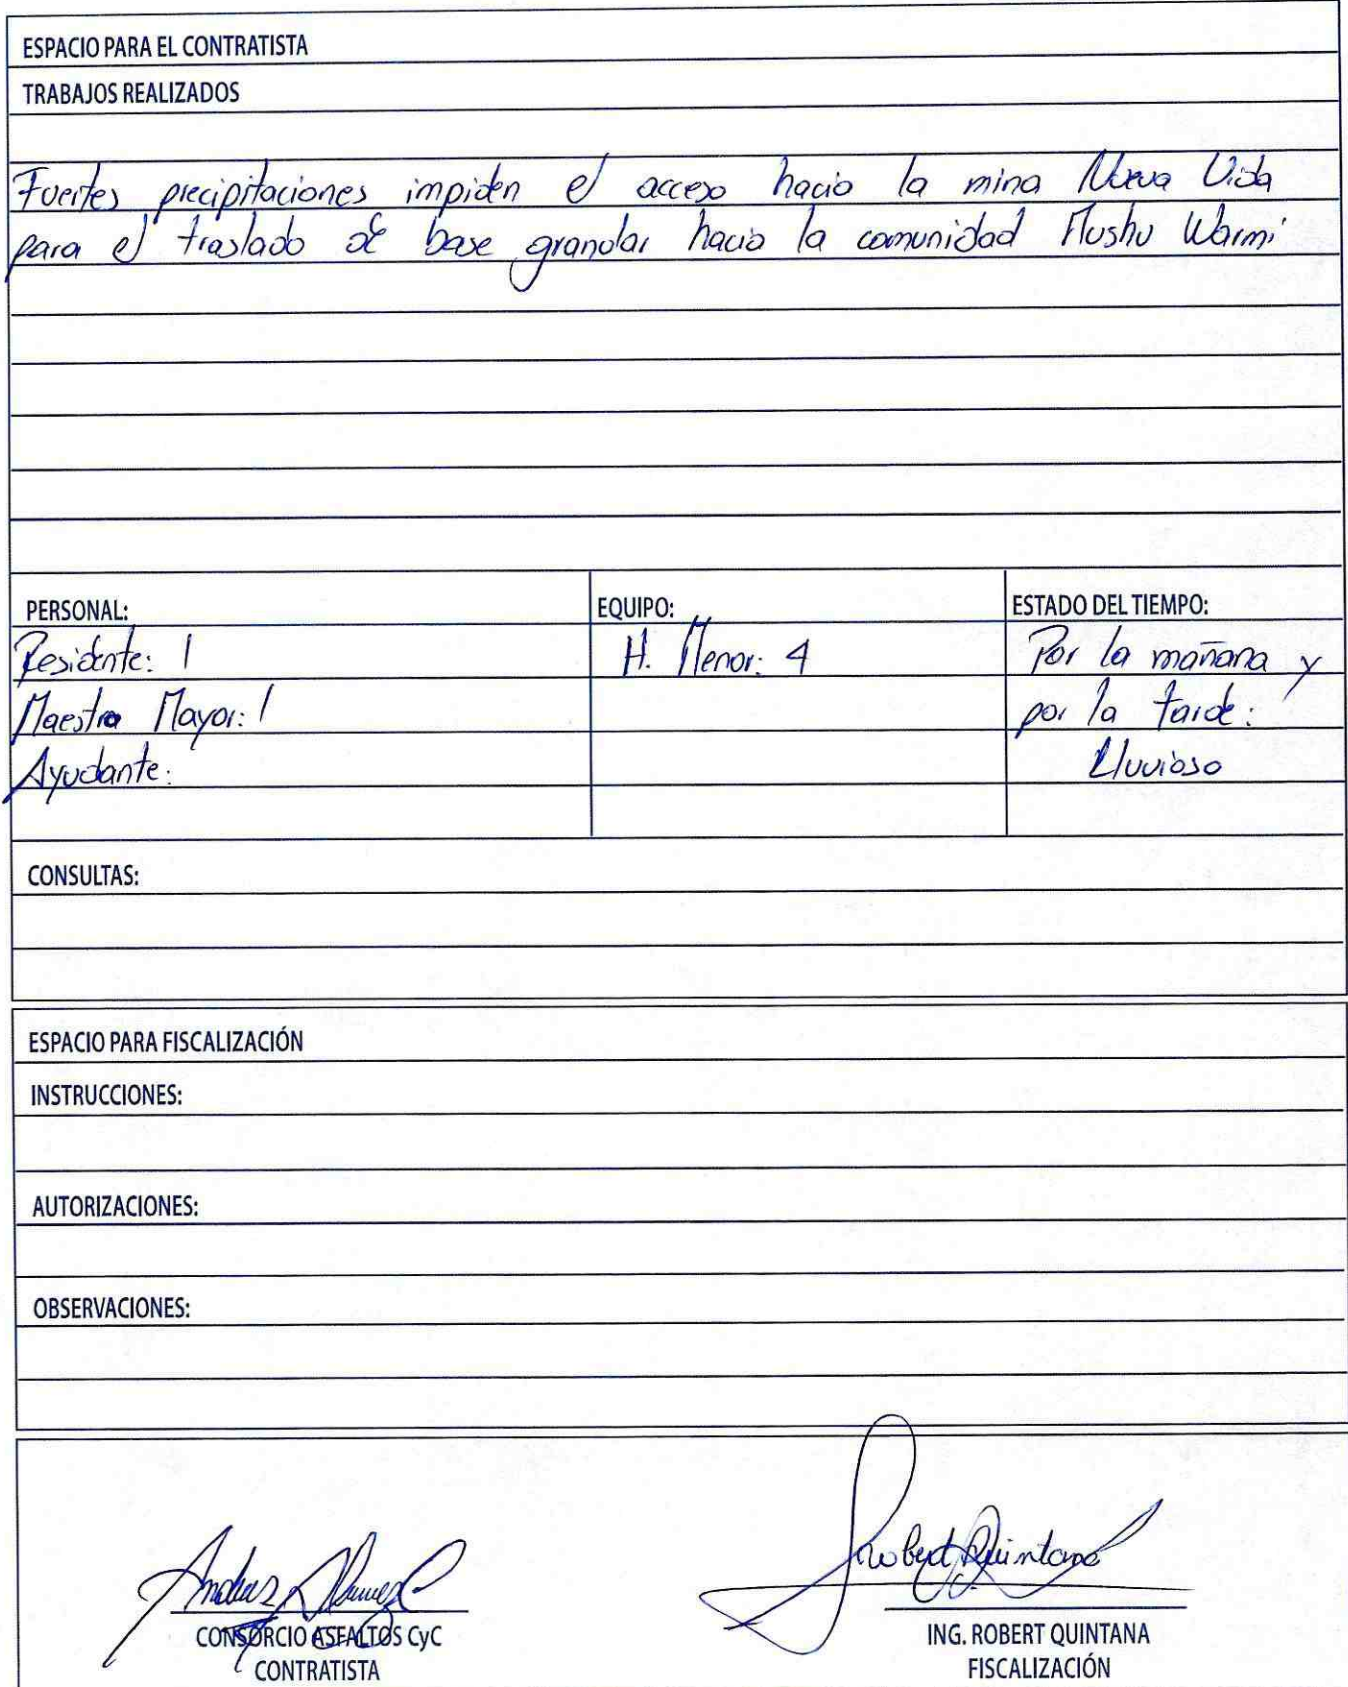 ESPACIO PARA EL CONTRATISTA
TRABAJOS REALIZADOS
Fuertes precipitaciones impiden el acceso hacia la mina Nueva Vida
para el traslado de base granular hacia la comunidad Mushu Warmi
PERSONAL: EQUIPO: ESTADO DEL TIEMPO:
Residente: 1 H. Menor: 4 Por la mañana y
Maestro Mayor: 1 por la tarde:
Ayudante: Lluvioso
CONSULTAS:
ESPACIO PARA FISCALIZACIÓN
INSTRUCCIONES:
AUTORIZACIONES:
OBSERVACIONES:
Robert Quintana
CONSORCIO ASFALTOS CyC ING. ROBERT QUINTANA
CONTRATISTA FISCALIZACIÓN